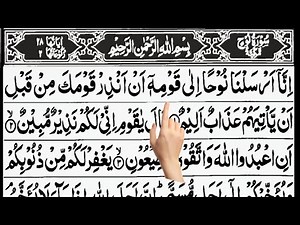 سورة نوح
بسم الله الرحمن الرحيم
اِنَّاۤ اَرْسَلْنَا نُوْحًا اِلٰى قَوْمِهٖۤ اَنْ اَنْذِرْ قَوْمَكَ مِنْ قَبْلِ
اَنْ يَّاْتِيَهُمْ عَذَابٌ اَلِيْمٌ ۝۱ قَالَ يٰقَوْمِ اِنِّيْ لَكُمْ نَذِيْرٌ مُّبِيْنٌ ۝۲
اَنِ اعْبُدُوا اللّٰهَ وَاتَّقُوْهُ ۝۳ يَغْفِرْ لَكُمْ مِّنْ ذُنُوْبِكُمْ